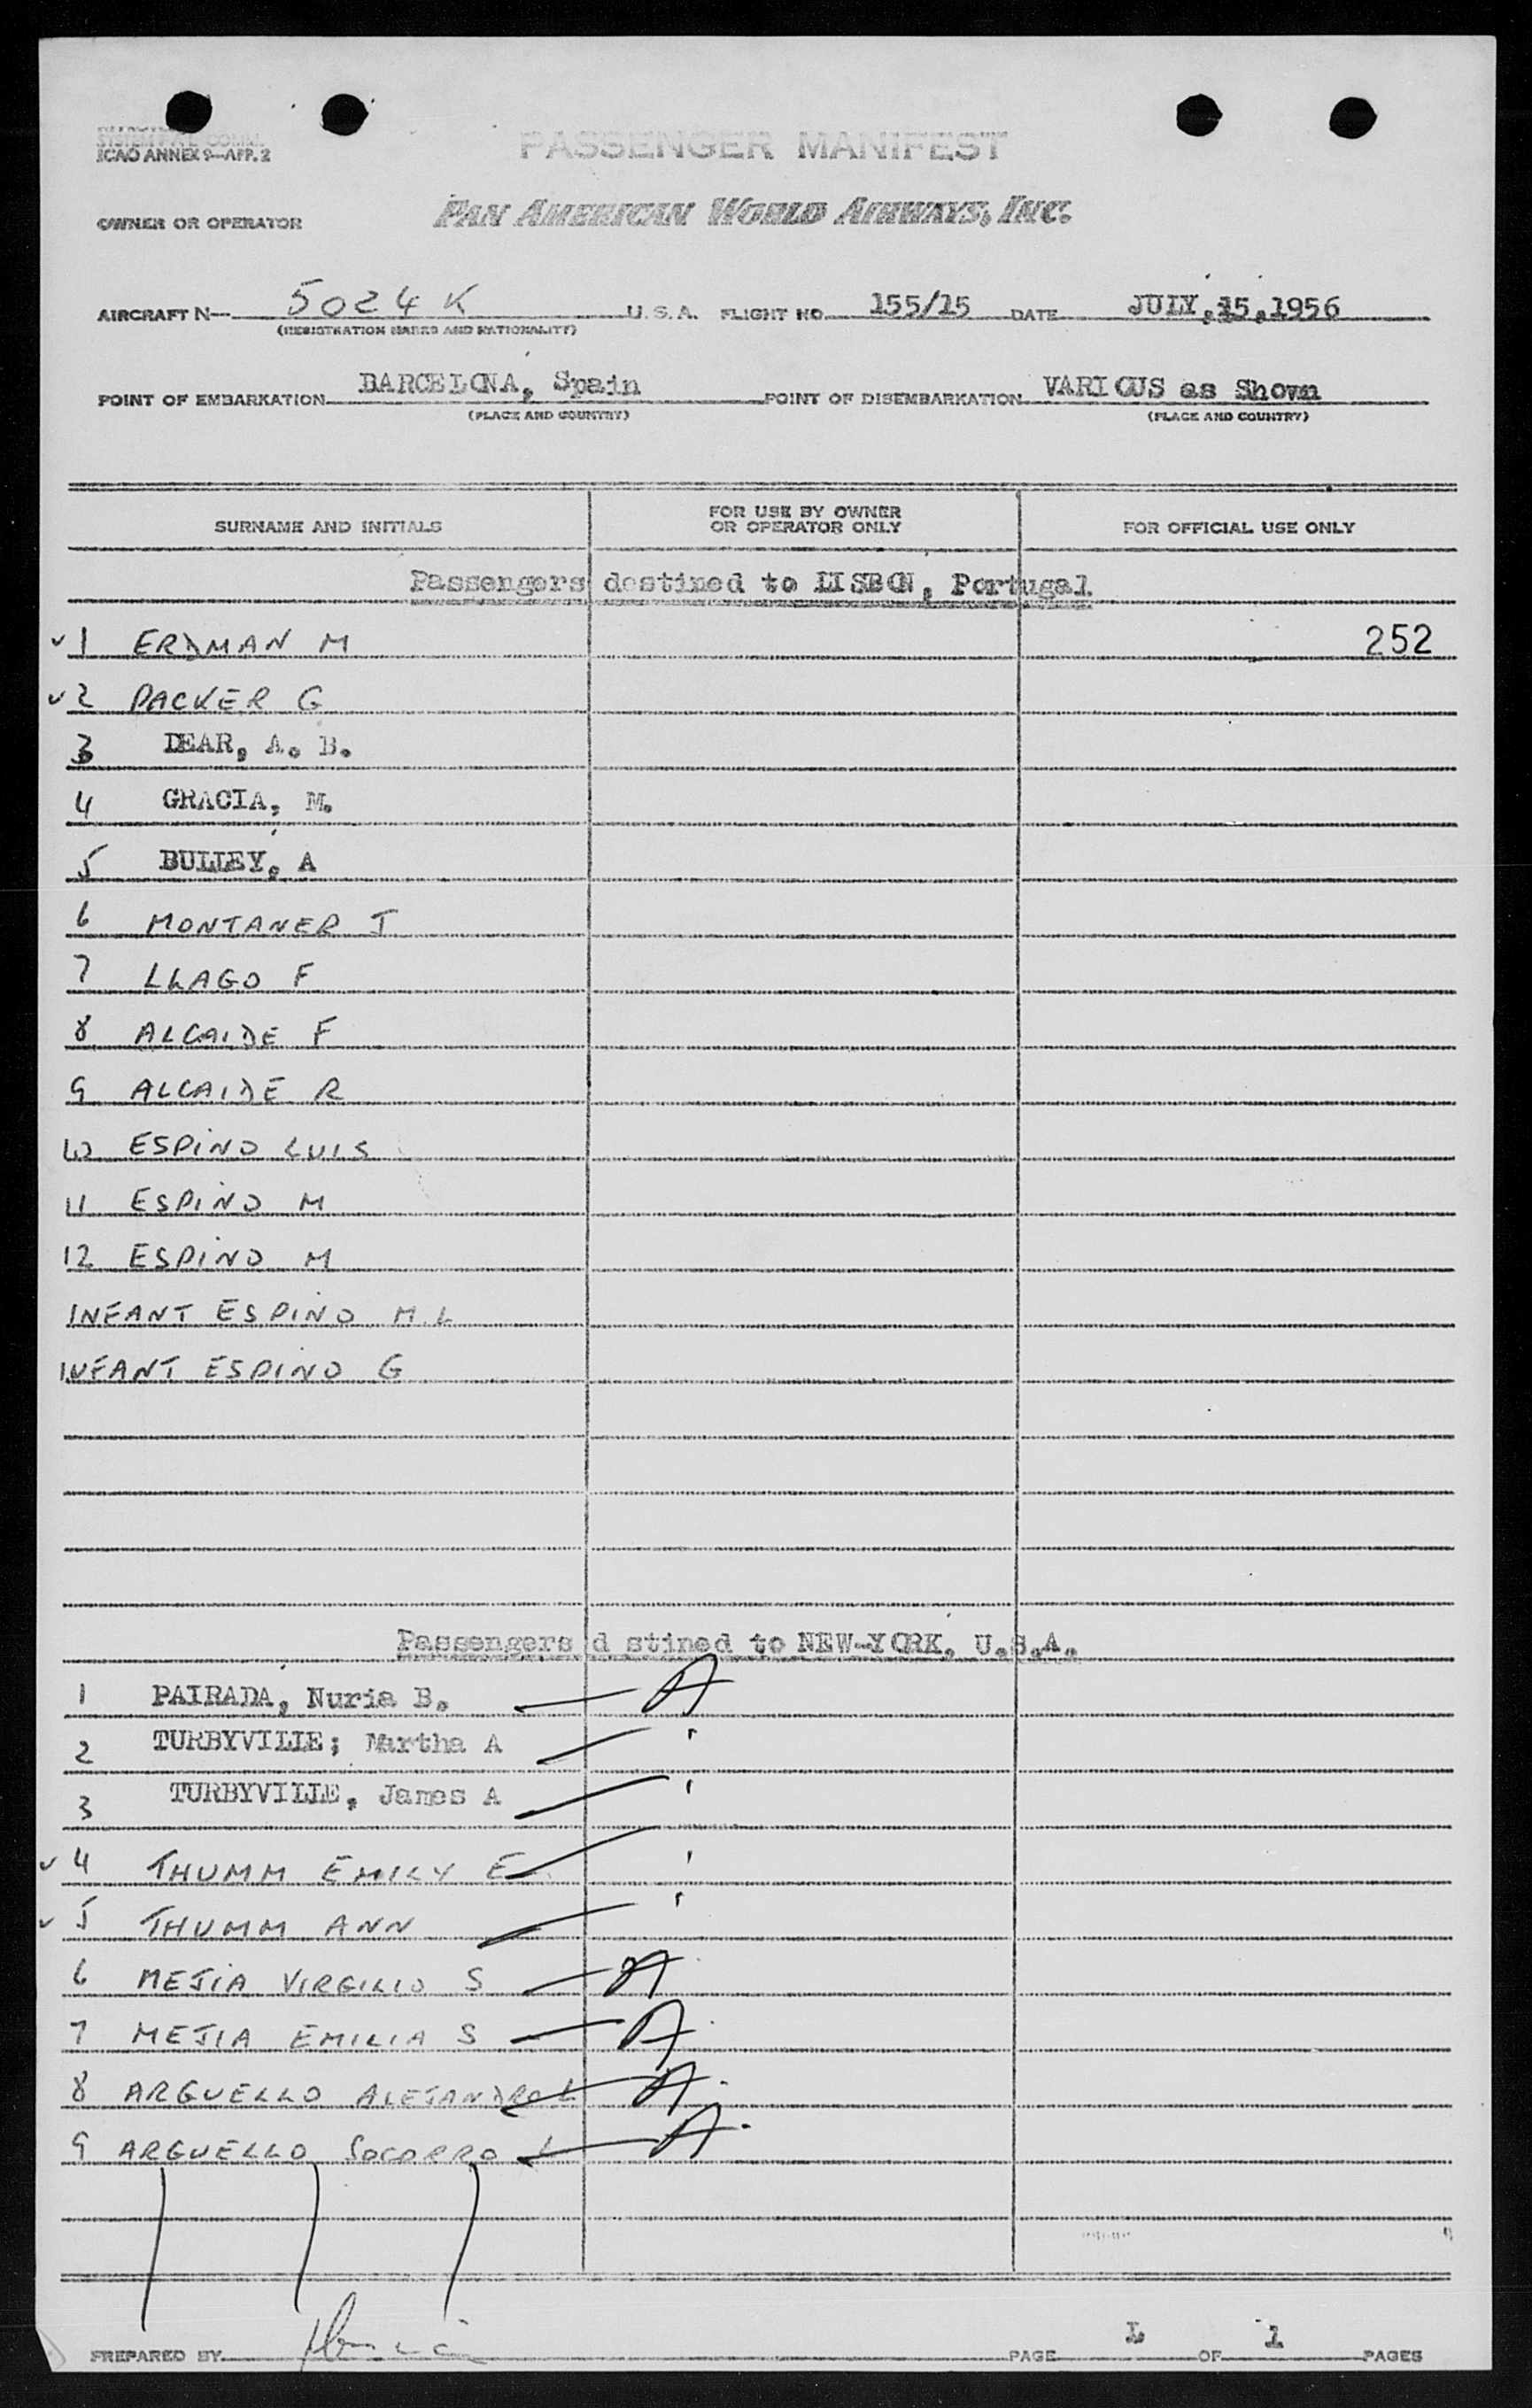 ICAO ANNEX 9—APP. 2
PASSENGER MANIFEST
OWNER OR OPERATOR PAN AMERICAN WORLD AIRWAYS, INC.
AIRCRAFT N— 5024 K U. S. A. FLIGHT NO. 155/15 DATE JULY,15,1956
(REGISTRATION MARKS AND NATIONALITY)
POINT OF EMBARKATION BARCELONA, Spain POINT OF DISEMBARKATION VARIOUS as Shown
(PLACE AND COUNTRY) (PLACE AND COUNTRY)
SURNAME AND INITIALS FOR USE BY OWNER OR OPERATOR ONLY FOR OFFICIAL USE ONLY
Passengers destined to LISBON, Portugal.
✓ 1 ERDMAN M 252
✓ 2 PACKER G
3 DEAR, A. B.
4 GRACIA, M.
5 BULLEY, A
6 MONTANER J
7 LLAGO F
8 ALCAIDE F
9 ALCAIDE R
10 ESPINO LUIS
11 ESPINO M
12 ESPINO M
INFANT ESPINO M.L
INFANT ESPINO G
Passengers d stined to NEW-YORK, U.S.A.
1 PAIRADA, Nuria B. A
2 TURBYVILLE; Martha A
3 TURBYVILLE, James A
✓ 4 THUMM EMILY E
✓ 5 THUMM ANN
6 MEJIA VIRGILIO S A
7 MEJIA EMILIA S A
8 ARGUELLO ALEJANDRO L A
9 ARGUELLO SOCORRO L A
PREPARED BY PAGE 1 OF 1 PAGES